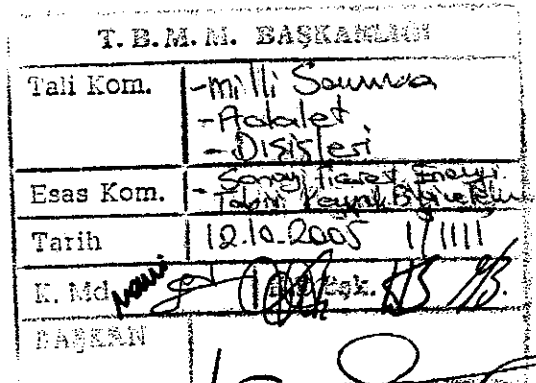 T. B. M. M. BAŞKANLIĞI
Tali Kom. -Milli Savunma
-Adalet
-Dışişleri
Esas Kom. - Sanayi Ticaret Enerji
Tabii Kaynk.
Tarih 12.10.2005 1/1111
K. Md. Bşk.
BAŞKAN